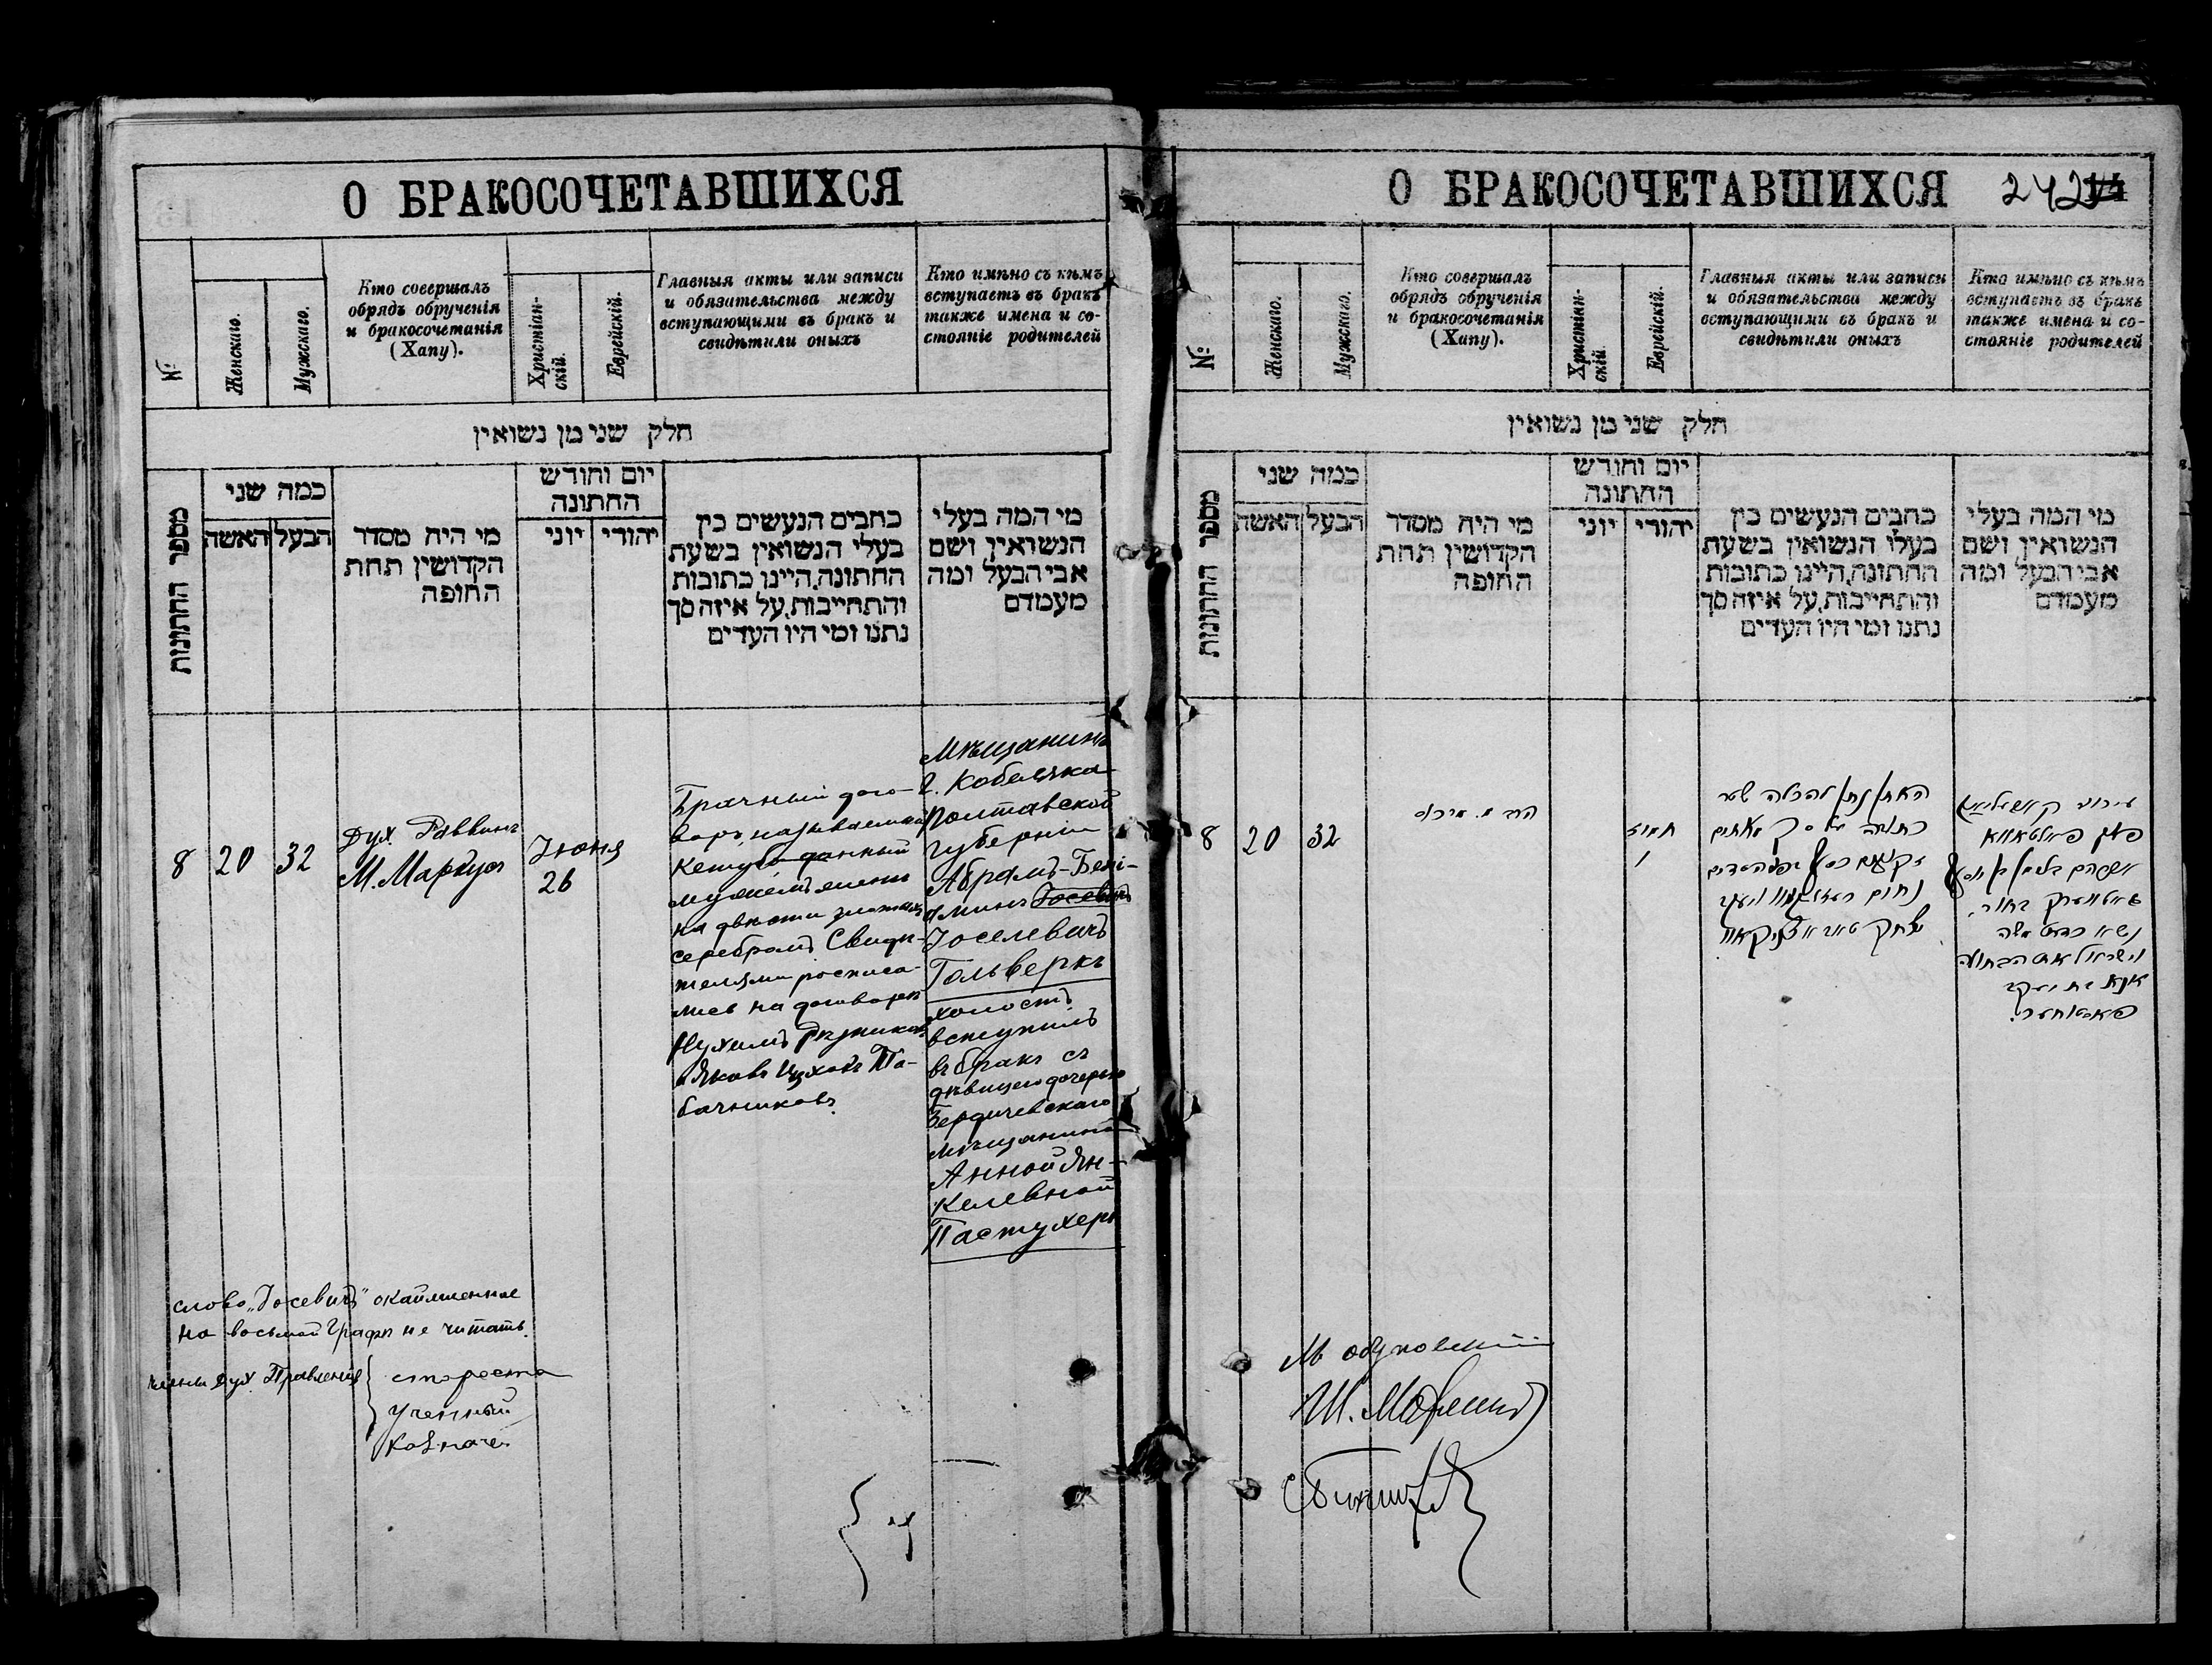 О БРАКОСОЧЕТАВШИХСЯ
№
Женскаго.
Мужскаго.
Кто совершалъ
обрядъ обрученія
и бракосочетанія
(Хапу).
Христіан-
скій.
Еврейскій.
Главныя акты или записи
и обязательства между
вступающими въ бракъ и
свидѣтили оныхъ
Кто имѣно съ кѣмъ
вступаетъ въ бракъ
также имена и со-
стояніе родителей
חלק שני מן נשואין
מספר החתונות
כמה שני
האשה
הבעל
מי היה מסדר
הקדושין תחת
החופה
יום וחודש
החתונה
יוני
יהודי
כתבים הנעשים בין
בעלי הנשואין בשעת
החתונה, היינו כתובות
והתחייבות, על איזה סך
נתנו ומי היו העדים
מי המה בעלי
הנשואין ושם
אבי הבעל ומה
מעמדם
8
20
32
Дух. Раввинъ
М. Маркусъ
Іюня
26
Брачный дого-
воръ, называемый
Кетуба данный
мужемъ женѣ
на двѣсти злотыхъ
серебромъ Свидѣ-
телями росписа-
лись на договорѣ
Нухимъ Рѣзниковъ
и Яковъ Ицховъ Та-
бачниковъ.
Мѣщанинъ
г. Кобеляка
Полтавской
губерніи
Абрамъ-Бені-
аминъ Іосевичъ
Іоселевичъ
Гольверкъ
холостъ
вступилъ
въ бракъ съ
дѣвицею дочерью
Бердичевскаго
мѣщанина
Анной Ян-
келевной
Пастухеръ
слово „Іосевичъ" окаймленное
на восьмой графѣ не читать.
Члены Дух. Правленія
староста
ученный
Казначей
О БРАКОСОЧЕТАВШИХСЯ
242
№
Женскаго.
Мужскаго.
Кто совершалъ
обрядъ обрученія
и бракосочетанія
(Хапу).
Христіан-
скій
Еврейскій.
Главныя акты или записи
и обязательства между
вступающими въ бракъ и
свидѣтили оныхъ
Кто имѣно съ кѣмъ
вступаетъ въ бракъ
также имена и со-
стояніе родителей
חלק שני מן נשואין
מספר החתונות
כמה שני
האשה
הבעל
מי היה מסדר
הקדושין תחת
החופה
יום וחודש
החתונה
יוני
יהודי
כתבים הנעשים בין
בעלי הנשואין בשעת
החתונה, היינו כתובות
והתחייבות, על איזה סך
נתנו ומי היו העדים
מי המה בעלי
הנשואין ושם
אבי הבעל ומה
מעמדם
8
20
32
הרב מ.
תמוז
החתן נתן להכלה שטר
כתובה על סך מאתים
זקוקים כסף
נחום
יצחק
נשא כדת משה
וישראל את הבתולה
אנא בת יעקב
פאסטוכער.